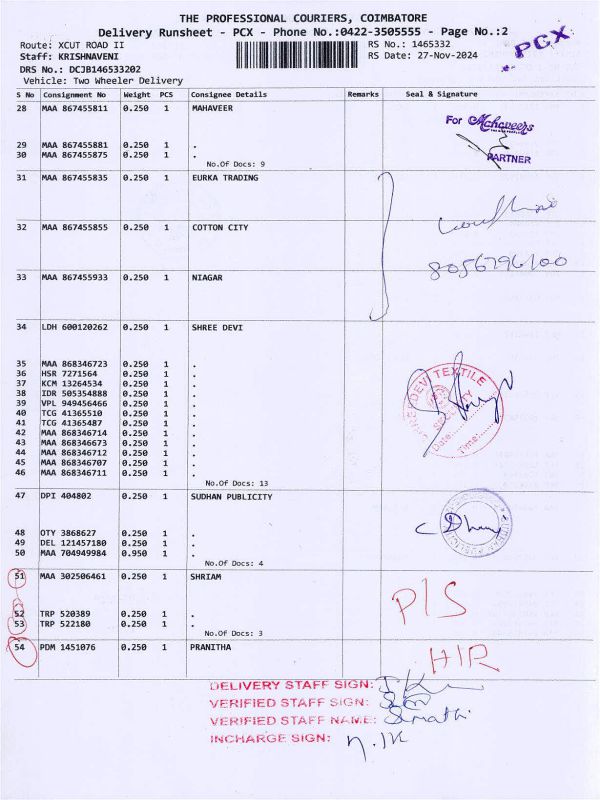 THE PROFESSIONAL COURIERS, COIMBATORE
Delivery Runsheet - PCX - Phone No.:0422-3505555 - Page No.:2
Route: XCUT ROAD II
RS No.: 1465332
PCX
Staff: KRISHNAVENI
RS Date: 27-Nov-2024
DRS No.: DCJB146533202
Vehicle: Two Wheeler Delivery
S No Consignment No Weight PCS Consignee Details Remarks Seal & Signature
28 MAA 867455811 0.250 1 MAHAVEER
For Mahaveers
29 MAA 867455881 0.250 1 .
30 MAA 867455875 0.250 1 .
PARTNER
No.Of Docs: 9
31 MAA 867455835 0.250 1 EURKA TRADING
32 MAA 867455855 0.250 1 COTTON CITY
8056796100
33 MAA 867455933 0.250 1 NIAGAR
34 LDH 600120262 0.250 1 SHREE DEVI
35 MAA 868346723 0.250 1 .
36 HSR 7271564 0.250 1 .
37 KCM 13264534 0.250 1 .
38 IDR 505354888 0.250 1 .
39 VPL 949456466 0.250 1 .
40 TCG 41365510 0.250 1 .
41 TCG 41365487 0.250 1 .
42 MAA 868346714 0.250 1 .
43 MAA 868346673 0.250 1 .
44 MAA 868346712 0.250 1 .
45 MAA 868346707 0.250 1 .
46 MAA 868346711 0.250 1 .
SHREEDEVI TEXTILE
SECURITY
Date:
Time:
No.Of Docs: 13
47 DPI 404802 0.250 1 SUDHAN PUBLICITY
48 OTY 3868627 0.250 1 .
49 DEL 121457180 0.250 1 .
50 MAA 704949984 0.950 1 .
No.Of Docs: 4
51 MAA 302506461 0.250 1 SHRIAM
P/S
52 TRP 520389 0.250 1 .
53 TRP 522180 0.250 1 .
No.Of Docs: 3
54 PDM 1451076 0.250 1 PRANITHA
DELIVERY STAFF SIGN:
VERIFIED STAFF SIGN:
VERIFIED STAFF NAME:
INCHARGE SIGN: